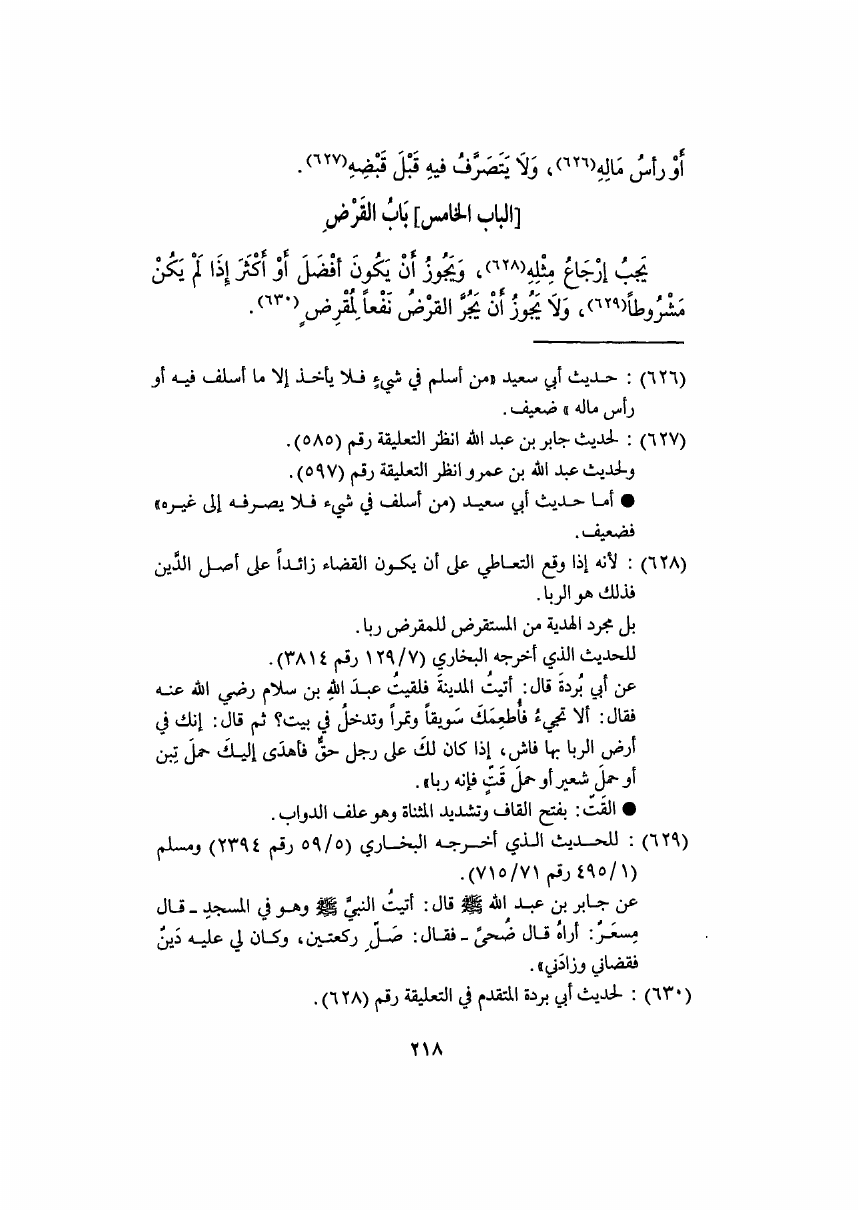 أَوْ رأسُ مَالِهِ(٦٢٦)، وَلَا يَتَصَرَّفُ فيهِ قَبْلَ قَبْضِهِ(٦٢٧).
[الباب الخامس] بَابُ القَرْضِ
يَجِبُ إرْجَاعُ مِثْلِهِ(٦٢٨)، وَيَجُوزُ أَنْ يَكُونَ أفْضَلَ أَوْ أكْثَرَ إِذَا لَمْ يَكُنْ
مَشْرُوطاً(٦٢٩)، وَلَا يَجُوزُ أَنْ يَجُرَّ القرْضُ نَفْعاً لِمُقْرِضٍ(٦٣٠).
(٦٢٦) : حديث أبي سعيد «من أسلم في شيءٍ فلا يأخذ إلا ما أسلف فيه أو
رأس ماله » ضعيف.
(٦٢٧) : لحديث جابر بن عبد الله انظر التعليقة رقم (٥٨٥).
ولحديث عبد الله بن عمرو انظر التعليقة رقم (٥٩٧).
● أما حديث أبي سعيد (من أسلف في شيء فلا يصرفه إلى غيره»
فضعيف.
(٦٢٨) : لأنه إذا وقع التعاطي على أن يكون القضاء زائداً على أصل الدَّين
فذلك هو الربا.
بل مجرد الهدية من المستقرض للمقرض ربا.
للحديث الذي أخرجه البخاري (١٢٩/٧ رقم ٣٨١٤).
عن أبي بُردةَ قال: أتيتُ المدينةَ فلقيتُ عبدَ اللهِ بن سلام رضي الله عنه
فقال: ألا تجيءُ فأُطعِمَكَ سَويقاً وتمراً وتدخلُ في بيت؟ ثم قال: إنك في
أرض الربا بها فاش، إذا كان لكَ على رجل حقٌّ فأهدَى إليكَ حملَ تِبن
أو حملَ شعير أو حملَ قَتٍّ فإنه ربا».
● القَتّ: بفتح القاف وتشديد المثناة وهو علف الدواب.
(٦٢٩) : للحديث الذي أخرجه البخاري (٥٩/٥ رقم ٢٣٩٤) ومسلم
(٤٩٥/١ رقم ٧١٥/٧١).
عن جابر بن عبد الله ﷺ قال: أتيتُ النبيَّ ﷺ وهو في المسجدِ - قال
مِسعَرٌ: أراهُ قال ضُحىً - فقال: صَلِّ ركعتين، وكان لي عليه دَينٌ
فقضاني وزادَني».
(٦٣٠) : لحديث أبي بردة المتقدم في التعليقة رقم (٦٢٨).
٢١٨